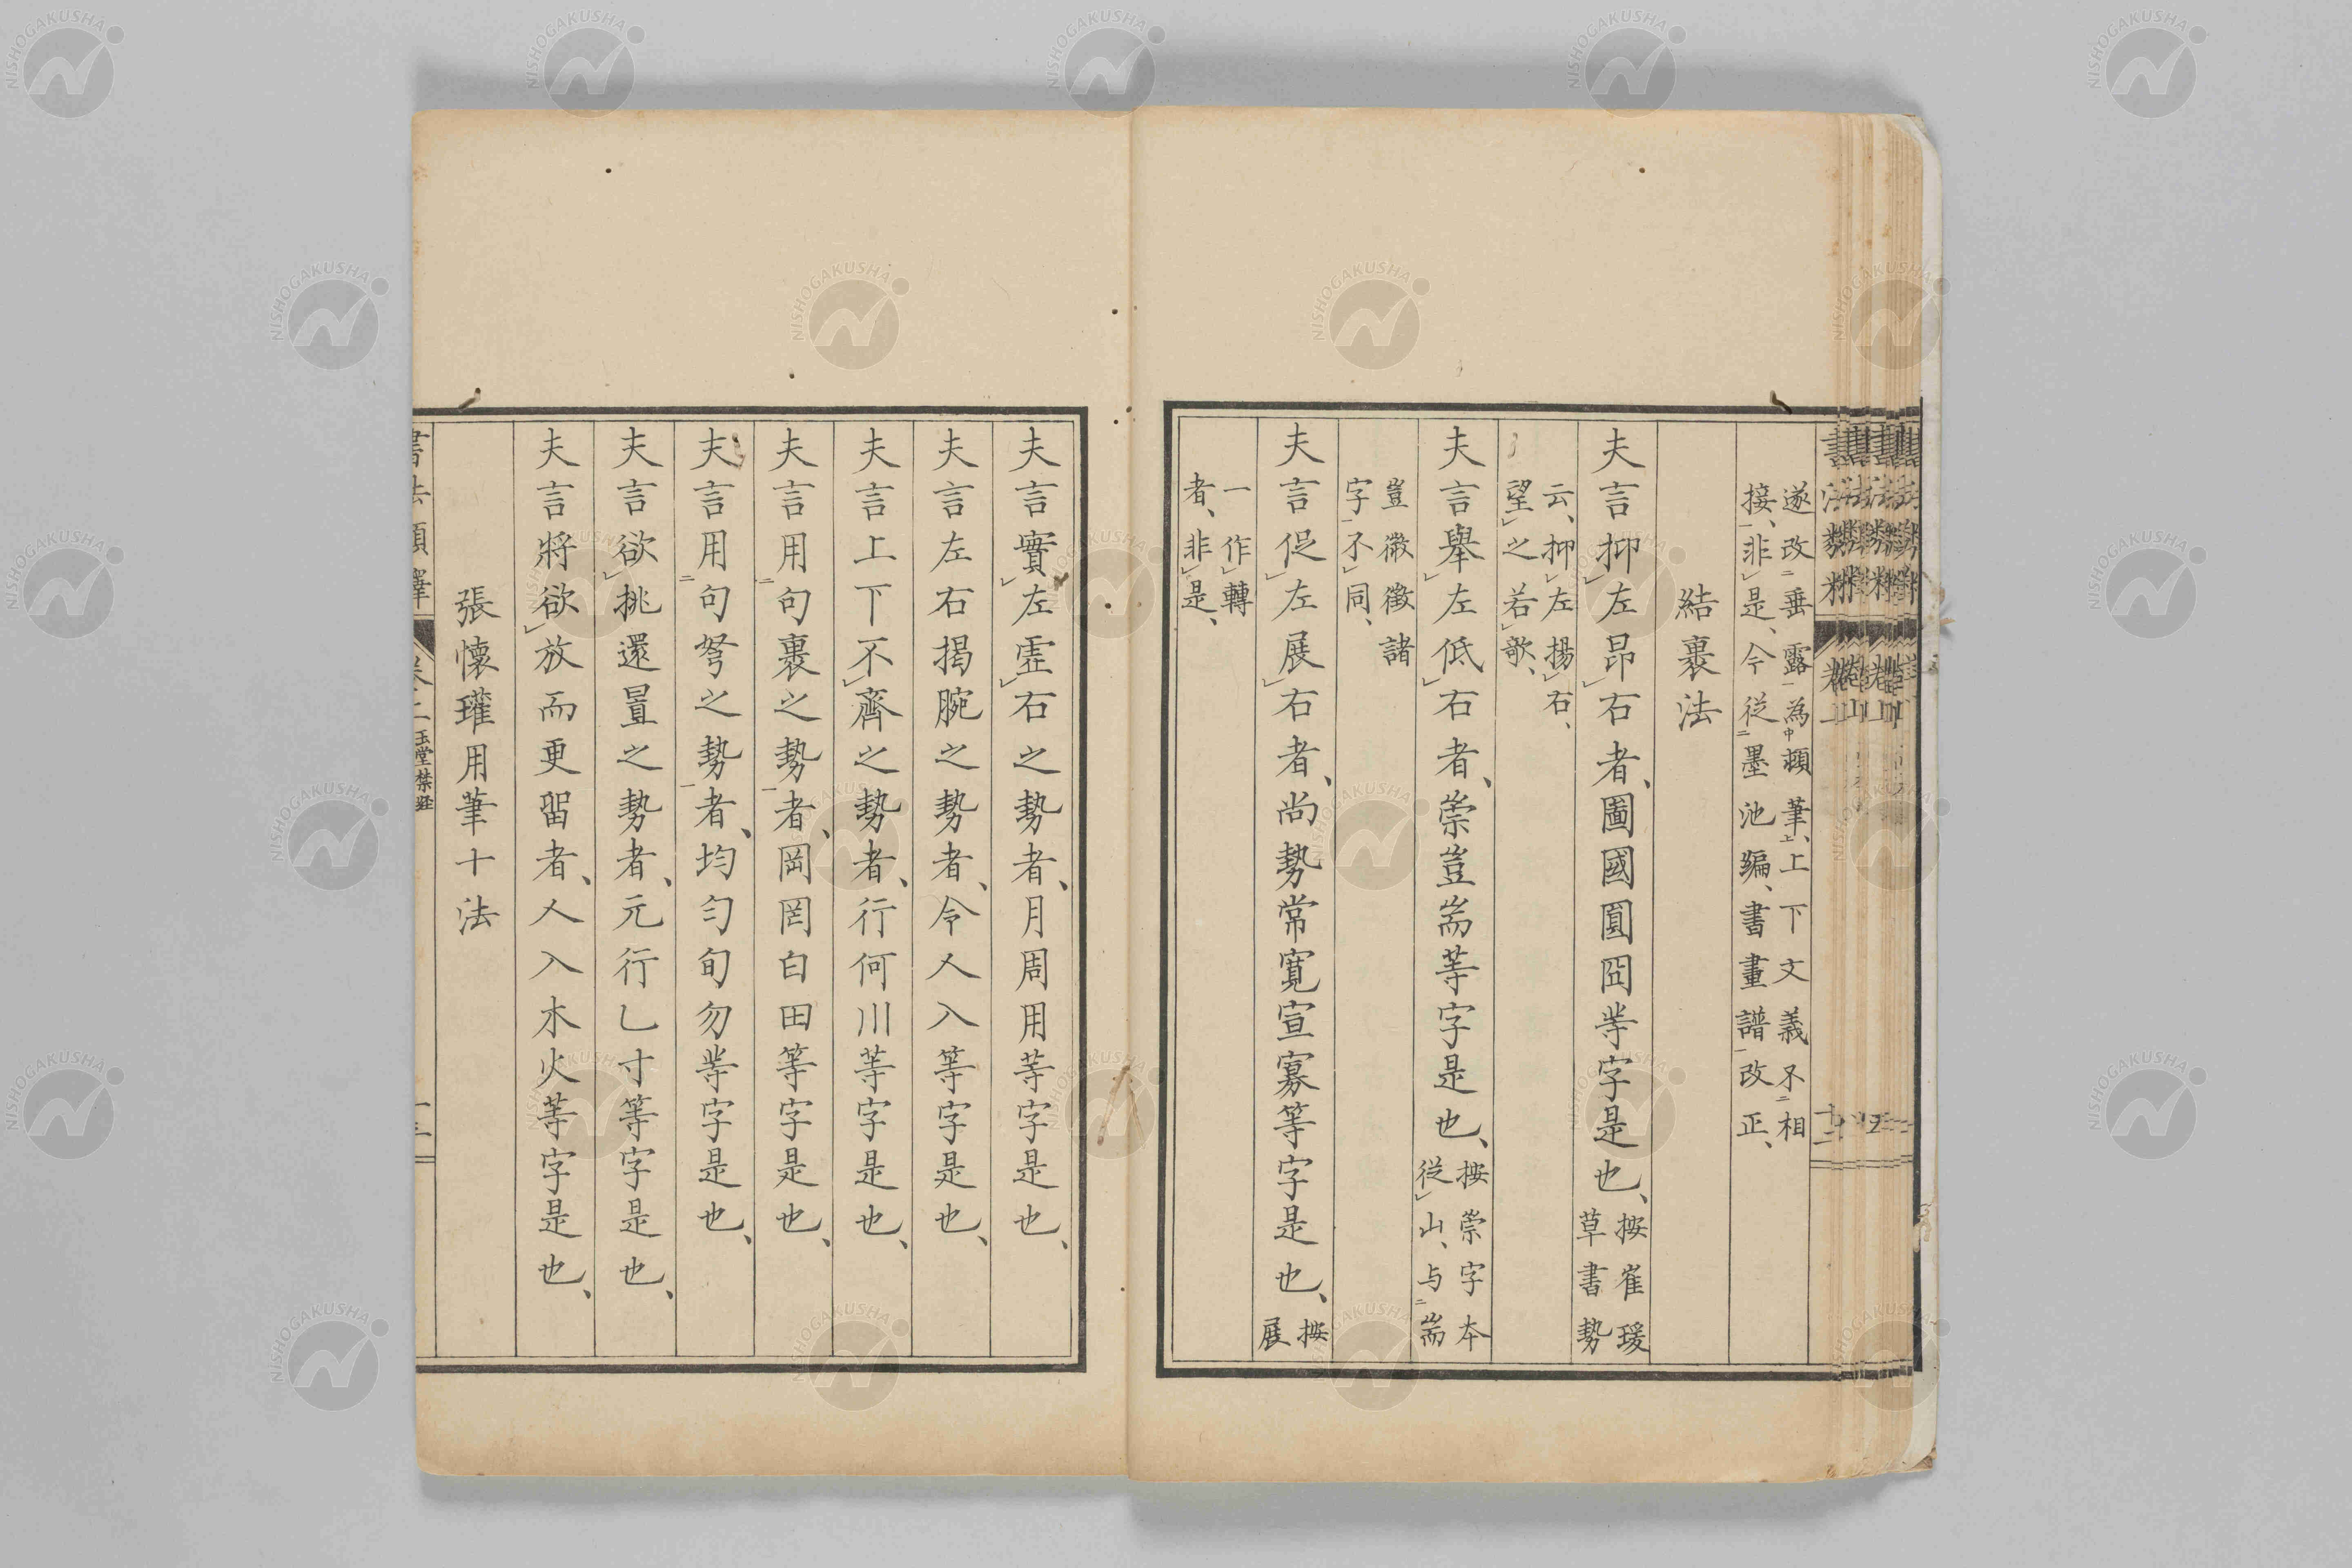 遂改垂露為頫筆、上下文義不相
接、非是、今從墨池編、書畫譜改正、
結裹法
夫言抑左昂右者、圖國圓囧等字是也、按崔瑗
草書勢
云、抑左揚右、
望之若歌、
夫言舉左低右者、崇豈耑等字是也、按崇字本
從山、与耑
豈微徵諸
字不同、
夫言促左展右者、尚勢常寬宣寡等字是也、按
展
一作轉
者、非是、
夫言實左虛右之勢者、月周用等字是也、
夫言左右揭腕之勢者、令人入等字是也、
夫言上下不齊之勢者、行何川等字是也、
夫言用句裹之勢者、岡罔白田等字是也、
夫言用句努之勢者、均勻旬勿等字是也、
夫言欲挑還置之勢者、元行乚寸等字是也、
夫言將欲放而更留者、人入木火等字是也、
張懷瓘用筆十法
書法類釋 卷二 玉堂禁經
NISHOGAKUSHA